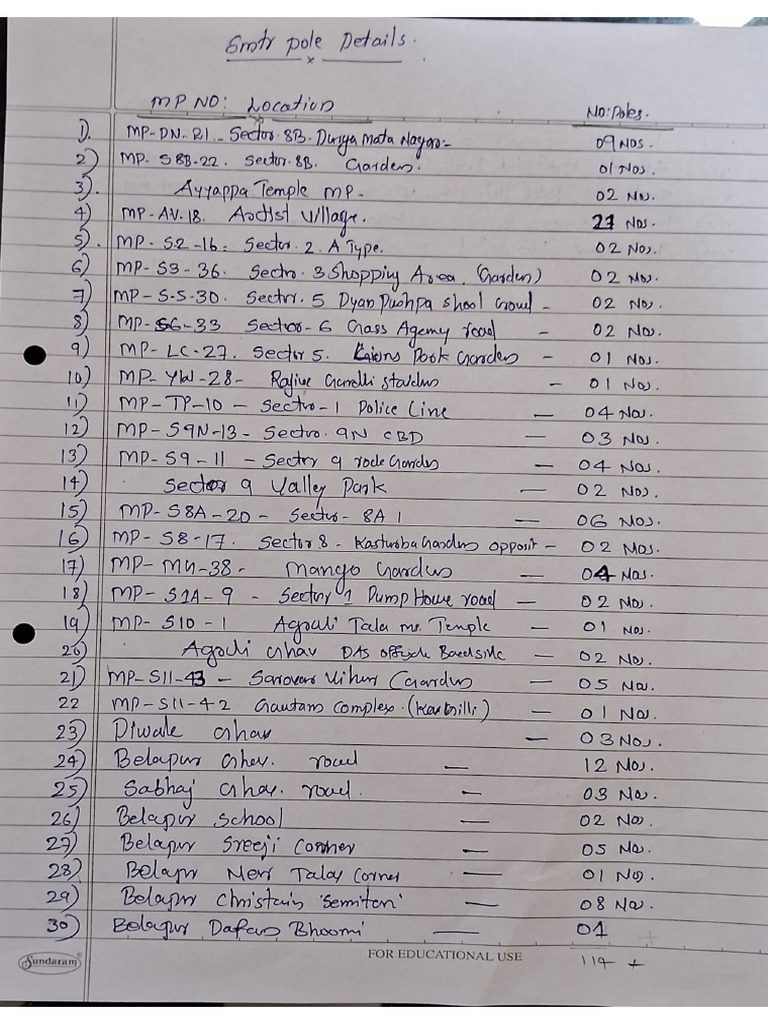 5mtr pole Details.
MP NO: Location No: Poles.
1). MP-DN-21 - Sector. 8B. Durga Mata Nagar:- 09 Nos.
2) MP- S8B-22. Sector. 8B. Garden. 01 Nos.
3). Ayyappa Temple MP. 02 Nos.
4) MP-AV-18. Artist Village. 27 Nos.
5). MP- S2-16- Sector. 2. A Type. 02 Nos.
6) MP- S3- 36. Sector. 3 Shopping Area. (Garden) 02 Nos.
7) MP- S-5-30. Sector. 5 Dyan Pushpa shool Groud - 02 Nos.
8) MP-S6-33 Sector-6 Gass Agency road - 02 Nos.
9) MP- LC-27. Sector 5. Lions Park Garden - 01 Nos.
10) MP- YW-28- Rajive Gandhi staidus - 01 Nos.
11) MP- TP-10 - Sector-1 Police Line - 04 Nos.
12) MP- S9N-13- Sector. 9N CBD - 03 Nos.
13) MP- S9 - 11 - Sector 9 rock Garden - 04 Nos.
14) Sector 9 Valley Park - 02 Nos.
15) MP- S8A-20 - Sector- 8A 1 - 06 Nos.
16) MP- S8-17. Sector 8- Kasturba Garden opposit - 02 Nos.
17) MP- MG-38- Mango Garden - 04 Nos.
18) MP- S1A-9 - Sector 1 Pump House road - 02 Nos.
19) MP- S10 - 1 Agroli Tala Temple - 01 Nos.
20) Agroli Ghav DAS Backside - 02 Nos.
21) MP-S11-43 - Sarovar Vihar (Garden - 05 Nos.
22 MP-S11-42 Gautam Complex. - 01 Nos.
23) Diwale Ghav - 03 Nos.
24) Belapur Ghav. road - 12 Nos.
25) Sabhaj Ghav. road. - 03 Nos.
26) Belapur School - 02 Nos.
27) Belapur Sreeji Corner - 05 Nos.
28) Belapr Meri Talav Corner - 01 Nos.
29) Belapur Christain 'Semitari' - 08 Nos.
30) Belapur Dafan Bhoomi - 01
Sundaram FOR EDUCATIONAL USE 114 +